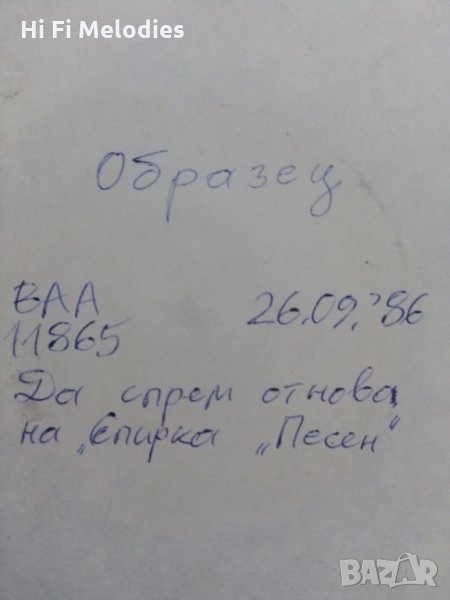 Hi Fi Melodies
Образец
ВАА 26.09.'86
11865
Да спрем отнова
на "Спирка „Песен"
BAZAR